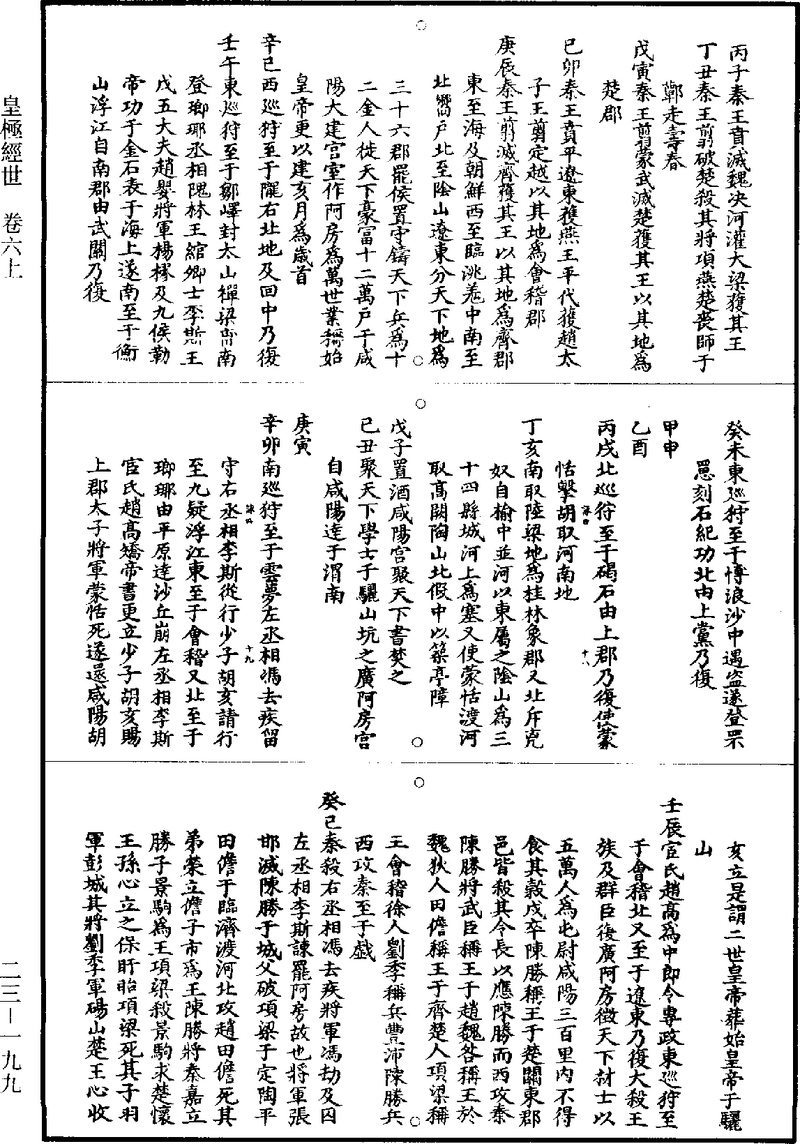 皇極經世　卷六上
二三—一九九
丙子秦王賁滅魏决河灌大梁獲其王
丁丑秦王翦破楚殺其將項燕楚喪師于
鄿走壽春
戊寅秦王翦蒙武滅楚獲其王以其地爲
楚郡
己卯秦王賁平遼東獲燕王平代獲趙太
子王翦定越以其地爲會稽郡
庚辰秦王翦滅齊獲其王以其地爲齊郡
東至海及朝鮮西至臨洮羗中南至
北嚮戸北至陰山遼東分天下地爲
三十六郡罷侯置守鑄天下兵爲十
二金人徙天下豪富十二萬戸于咸
陽大建宫室作阿房爲萬世業稱始
皇帝更以建亥月爲歲首
辛巳西巡狩至于隴右北地及回中乃復
壬午東巡狩至于鄒嶧封太山禪梁甫南
登瑯琊丞相隗林王綰卿士李斯王
戊五大夫趙嬰將軍楊樛及九侯勒
帝功于金石表于海上遂南至于衡
山浮江自南郡由武關乃復
癸未東巡狩至于博浪沙中遇盗遂登罘
罳刻石紀功北由上黨乃復
甲申
乙酉
丙戌北巡狩至于碣石由上郡乃復使蒙
恬擊胡取河南地
丁亥南取陸梁地爲桂林象郡又北斥兇
奴自榆中並河以東屬之陰山爲三
十四縣城河上爲塞又使蒙恬渡河
取高闕陶山北假中以築亭障
戊子置酒咸陽宫聚天下書焚之
己丑聚天下學士于驪山坑之廣阿房宫
自咸陽達于渭南
庚寅
辛卯南巡狩至于雲夢左丞相馮去疾留
守右丞相李斯從行少子胡亥請行
至九疑浮江東至于會稽又北至于
瑯琊由平原達沙丘崩左丞相李斯
宦氏趙高矯帝書更立少子胡亥賜
上郡太子將軍蒙恬死遂還咸陽胡
亥立是謂二世皇帝葬始皇帝于驪
山
壬辰宦氏趙高爲中郎令專政東巡狩至
于會稽北又至于遼東乃復大殺王
族及群臣復廣阿房徴天下材士以
五萬人爲屯尉咸陽三百里内不得
食其穀戍卒陳勝稱王于楚關東郡
邑皆殺其令長以應陳勝而西攻秦
陳勝將武臣稱王于趙魏咎稱王於
魏狄人田儋稱王于齊楚人項梁稱
王會稽徐人劉季稱兵豐沛陳勝兵
西攻秦至于戯
癸巳秦殺右丞相馮去疾將軍馮劫及囚
左丞相李斯諫罷阿房故也將軍張
邯滅陳勝于城父破項梁于定陶平
田儋于臨濟渡河北攻趙田儋死其
弟榮立儋子市爲王陳勝將秦嘉立
勝子景駒爲王項梁殺景駒求楚懷
王孫心立之保盱眙項梁死其子羽
軍彭城其將劉季軍碭山楚王心收